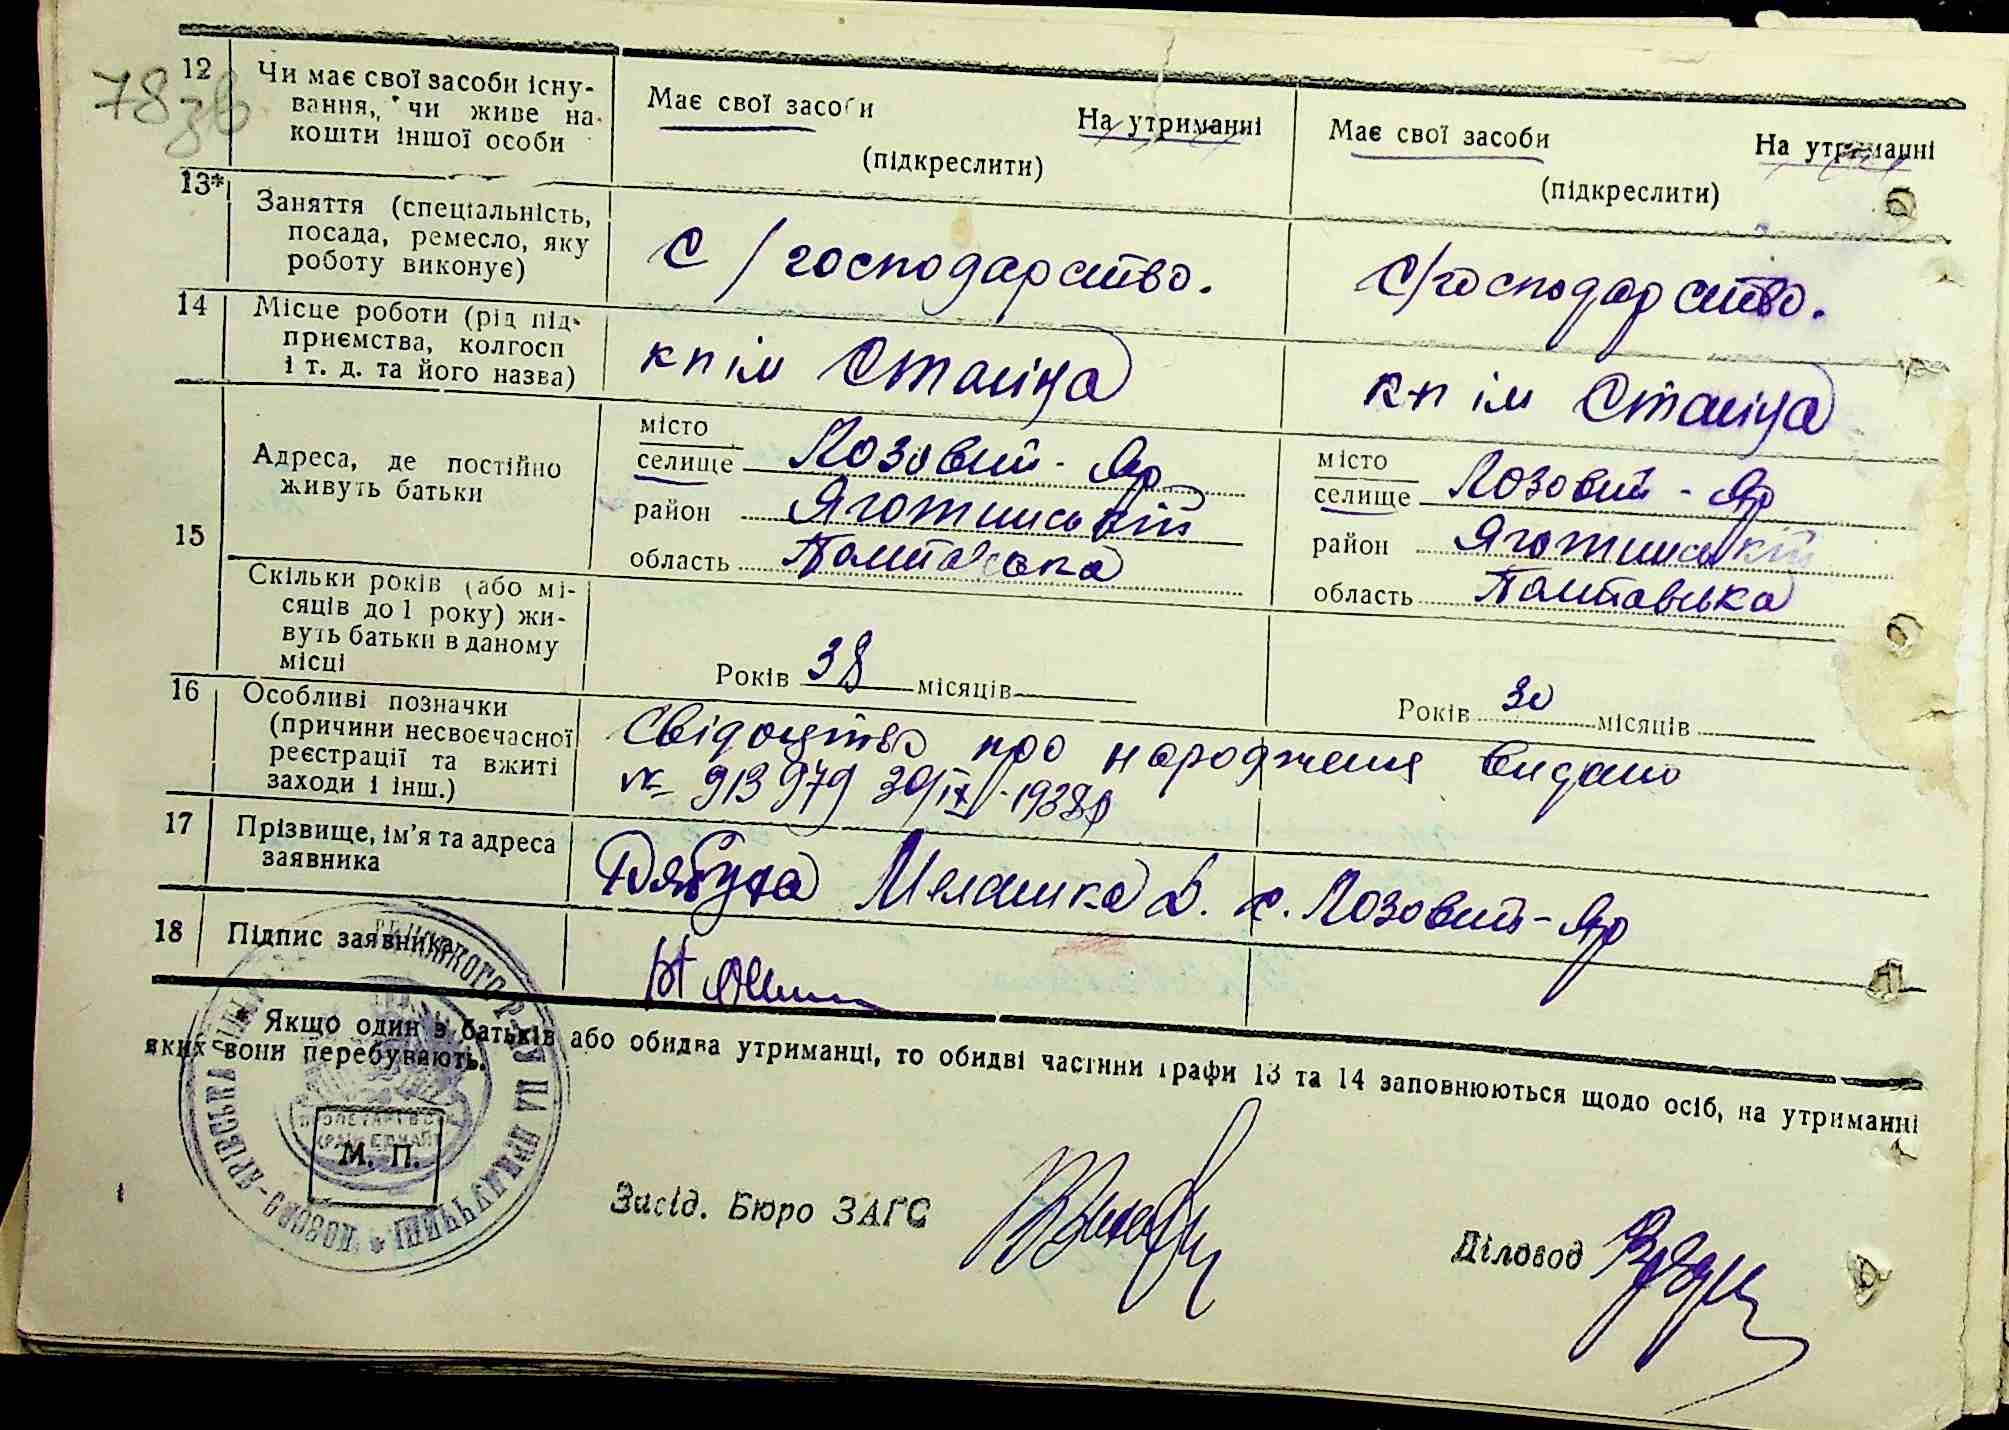 78зв
12 Чи має свої засоби існу-
вання, чи живе на
кошти іншої особи
Має свої засоби На утриманні
(підкреслити)
Має свої засоби На утриманні
(підкреслити)
13* Заняття (спеціальність,
посада, ремесло, яку
роботу виконує)
С/господарство.
С/господарство.
14 Місце роботи (рід під-
приємства, колгосп
і т. д. та його назва)
кп ім Сталіна
кп ім Сталіна
15 Адреса, де постійно
живуть батьки
місто
селище Лозовий-Яр
район Яготинській
область Полтавська
місто
селище Лозовий-Яр
район Яготинській
область Полтавська
Скільки років (або мі-
сяців до 1 року) жи-
вуть батьки в даному
місці
Років 38 місяців
Років 30 місяців
16 Особливі позначки
(причини несвоєчасної
реєстрації та вжиті
заходи і інш.)
Свідоцтво про народження видано
№ 913979 30/IX-1938р
17 Прізвище, ім'я та адреса
заявника
Мелашка Д. с. Лозовий-Яр
18 Підпис заявника
* Якщо один з батьків або обидва утриманці, то обидві частини графи 13 та 14 заповнюються щодо осіб, на утриманні
яких вони перебувають.
М. П.
Засід. Бюро ЗАГС
Діловод